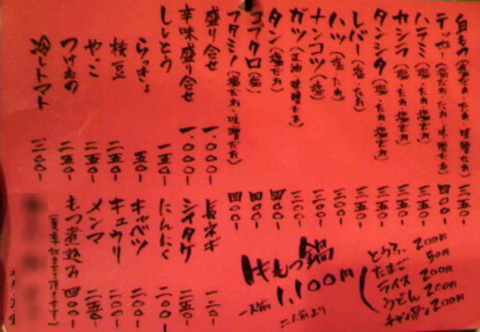 白もつ(塩・たれ・味噌だれ) 三五〇-
テッポー(塩・たれ・味噌だれ) 四〇〇-
ハラミ(塩・たれ・塩だれ) 三五〇-
カシラ(塩・たれ・塩だれ) 三五〇-
タンシタ(塩・たれ・塩だれ) 三五〇-
レバー(塩・たれ) 三五〇-
ハツ(塩・たれ) 三五〇-
ナンコツ(塩・たれ) 三〇〇-
ガツ(正油・味噌だれ) 三〇〇-
タン(塩だれ) 四〇〇-
コブクロ(塩だれ) 四〇〇-
フタミノ(塩・たれ・味噌だれ) 四〇〇-
盛り合せ 一、〇〇〇-
辛味盛り合せ 一、〇〇〇-
ししとう 一五〇-
らっきょ 一五〇-
枝豆 二五〇-
やっこ 二五〇-
つけもの 二五〇-
冷しトマト 三〇〇-
長ネギ 一五〇-
シイタケ 二五〇-
にんにく 二〇〇-
キャベツ 一〇〇-
キュウリ 二〇〇-
メンマ 二五〇-
もつ煮込み 四〇〇-
もつ鍋
一人前 1,100円
二人前より
とうふ 200円
たまご 50円
ライス 200円
うどん 200円
チャンポン 200円